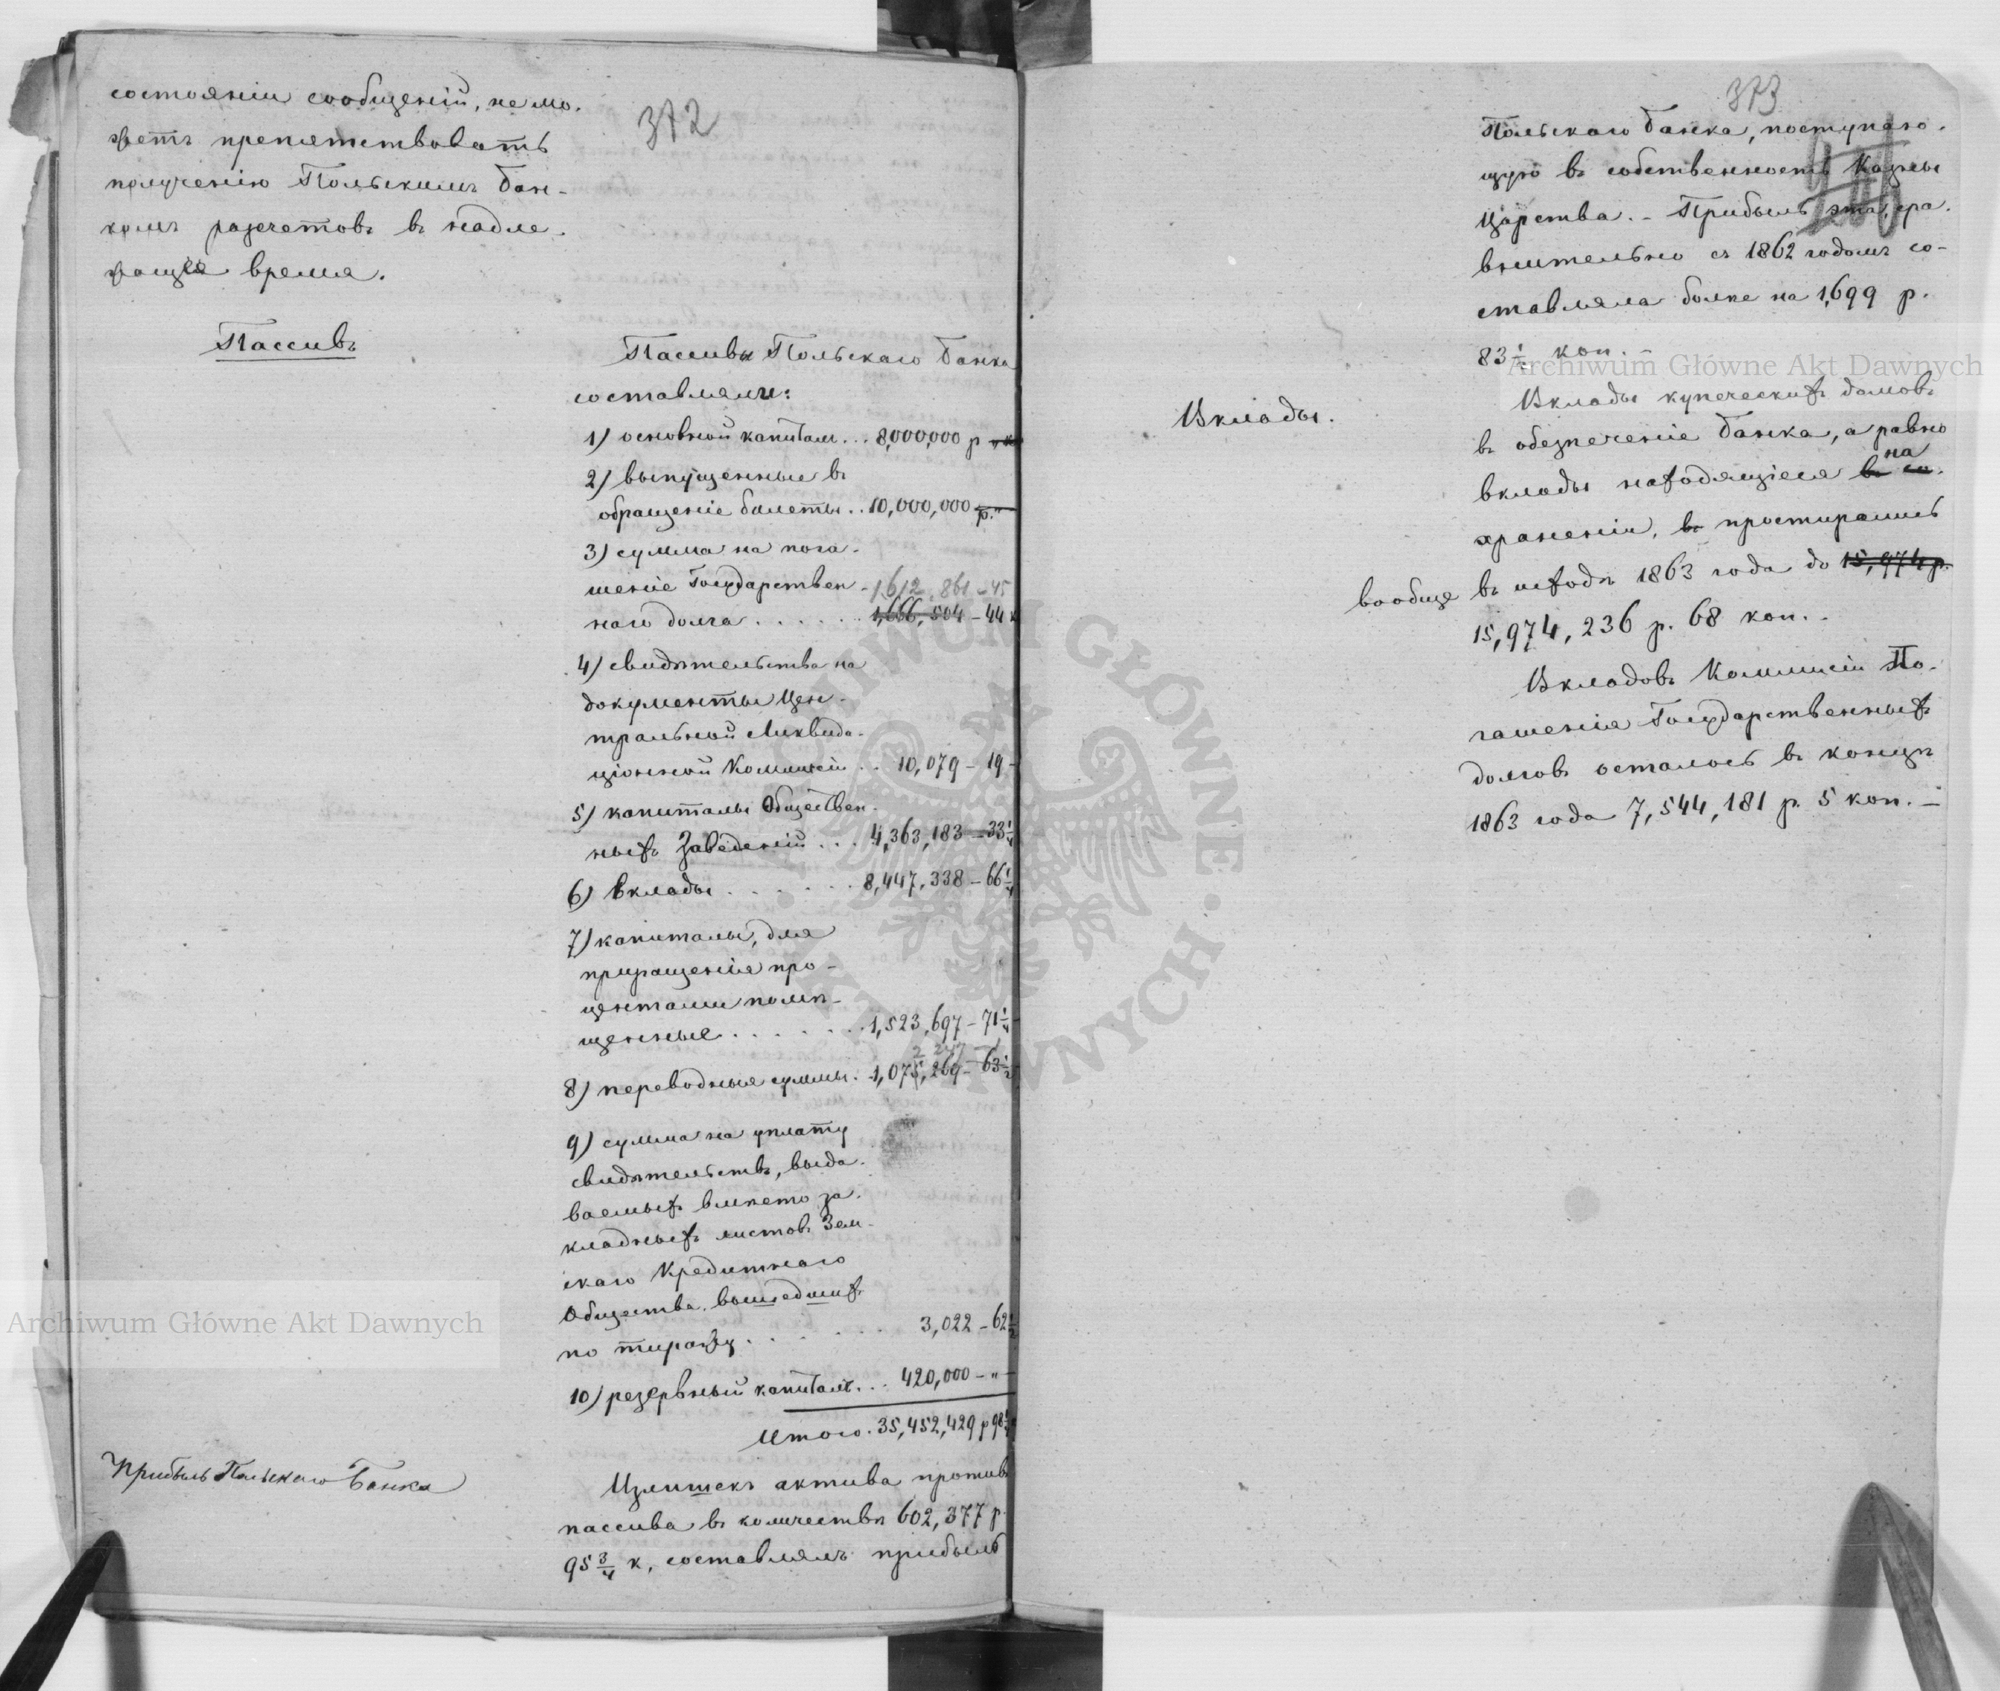 372
состоянiи сообщенiй, не мо-
жетъ препятствовать
полученiю Польскимъ Бан-
комъ разсчетовъ въ надле-
жащее время.
Пассивъ
Пассивы Польскаго Банка
составляли:
1) основной капиталъ... 8,000,000 р
2) выпущенные въ
обращенiе билеты.. 10,000,000 р. "
3) сумма на пога-
шенiе Государствен- 1,612,861 - 45
наго долга . . . . . . 1,666,504 - 44 к
4) свидѣтельства на
документы Цен-
тральной Ликвида-
цiонной Коммисiи .. 10,079 - 19 -
5) капиталы Обществен-
ныхъ Заведенiй . . . 4,363,183 - 33 1/4
6) вклады . . . . . . 8,447,338 - 66 1/4
7) капиталы, для
приращенiя про-
центами помѣ-
щенные . . . . . . 1,523,697 - 71 1/4
8) переводныя суммы. 1,075,269 - 63 1/2
9) сумма на уплату
свидѣтельствъ, выда-
ваемыхъ вмѣсто за-
кладныхъ листовъ Зем-
скаго Кредитнаго
Общества, вышедшихъ
по тиражу . . . . . . 3,022 - 62 1/2
10) резервный капиталъ... 420,000 - " -
Итого. 35,452,429 р 98
Прибыль Польскаго Банка
Излишекъ актива противъ
пассива въ количествѣ 602,377 р
95 3/4 к, составлялъ прибыль
373
Польскаго Банка, поступаю-
щую въ собственность Казны
Царства. - Прибыль эта, сра-
внительно съ 1862 годомъ со-
ставляла болѣе на 1,699 р.
83 1/2 коп. -
Вклады.
Вклады купеческихъ домовъ
въ обезпеченiе Банка, а равно
вклады находящiеся въ на со-
храненiи, въ простирались
вообще въ исходѣ 1863 года до 15,974 р.
15,974,236 р. 68 коп. -
Вкладовъ Коммисiи По-
гашенiя Государственныхъ
долговъ осталось въ концѣ
1863 года 7,544,181 р. 5 коп. -
Archiwum Główne Akt Dawnych
Archiwum Główne Akt Dawnych
ARCHIWUM GŁÓWNE · AKT DAWNYCH ·